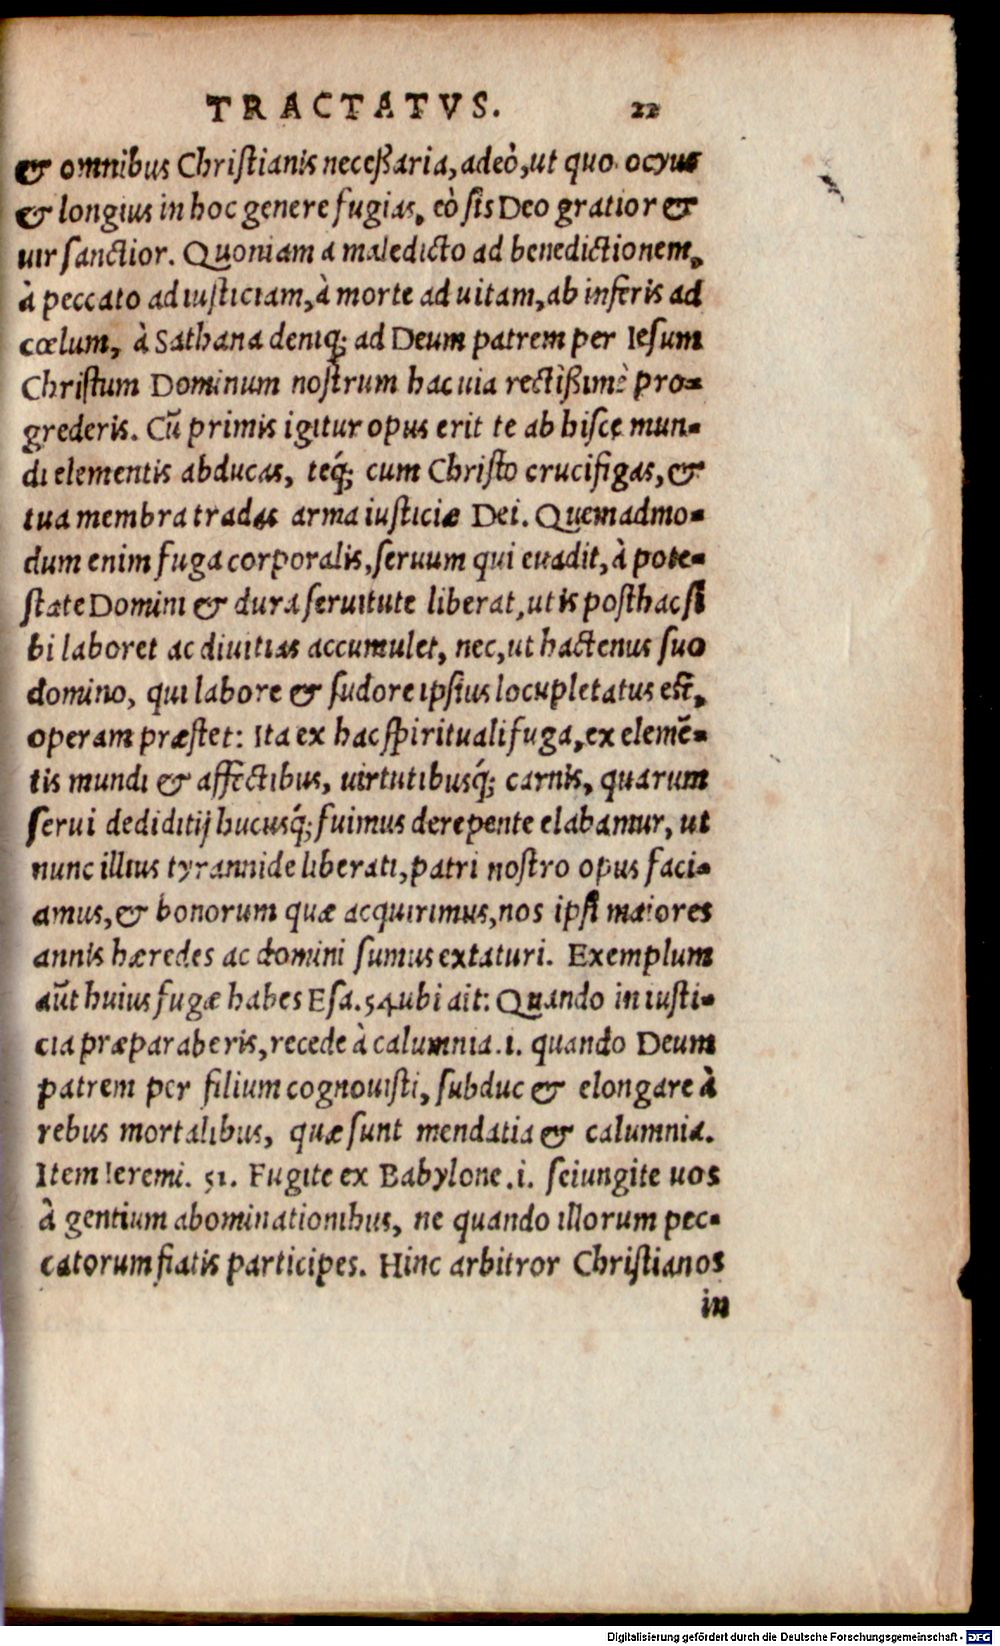 TRACTATVS. 22
& omnibus Christianis neceßaria, adeò, ut quo ocyus
& longius in hoc genere fugias, eò sis Deo gratior &
uir sanctior. Quoniam a maledicto ad benedictionem,
à peccato ad iusticiam, à morte ad uitam, ab inferis ad
cœlum, à Sathana deniq; ad Deum patrem per Iesum
Christum Dominum nostrum hac uia rectißimè pro-
grederis. Cū primis igitur opus erit te ab hisce mun-
di elementis abducas, teq́; cum Christo crucifigas, &
tua membra tradas arma iusticiæ Dei. Quemadmo-
dum enim fuga corporalis, seruum qui euadit, à pote-
state Domini & dura seruitute liberat, ut is posthac si
bi laboret ac diuitias accumulet, nec, ut hactenus suo
domino, qui labore & sudore ipsius locupletatus est,
operam præstet: Ita ex hac spirituali fuga, ex elemē-
tis mundi & affectibus, uirtutibusq́; carnis, quarum
serui dedititij hucusq́; fuimus derepente elabamur, ut
nunc illius tyrannide liberati, patri nostro opus faci-
amus, & bonorum quæ acquirimus, nos ipsi maiores
annis hæredes ac domini sumus extaturi. Exemplum
aūt huius fugæ habes Esa. 54 ubi ait: Quando in iusti-
cia præparaberis, recede à calumnia .i. quando Deum
patrem per filium cognouisti, subduc & elongare à
rebus mortalibus, quæ sunt mendatia & calumnia.
Item Ieremi. 51. Fugite ex Babylone .i. seiungite uos
à gentium abominationibus, ne quando illorum pec-
catorum fiatis participes. Hinc arbitror Christianos
in
Digitalisierung gefördert durch die Deutsche Forschungsgemeinschaft - DFG